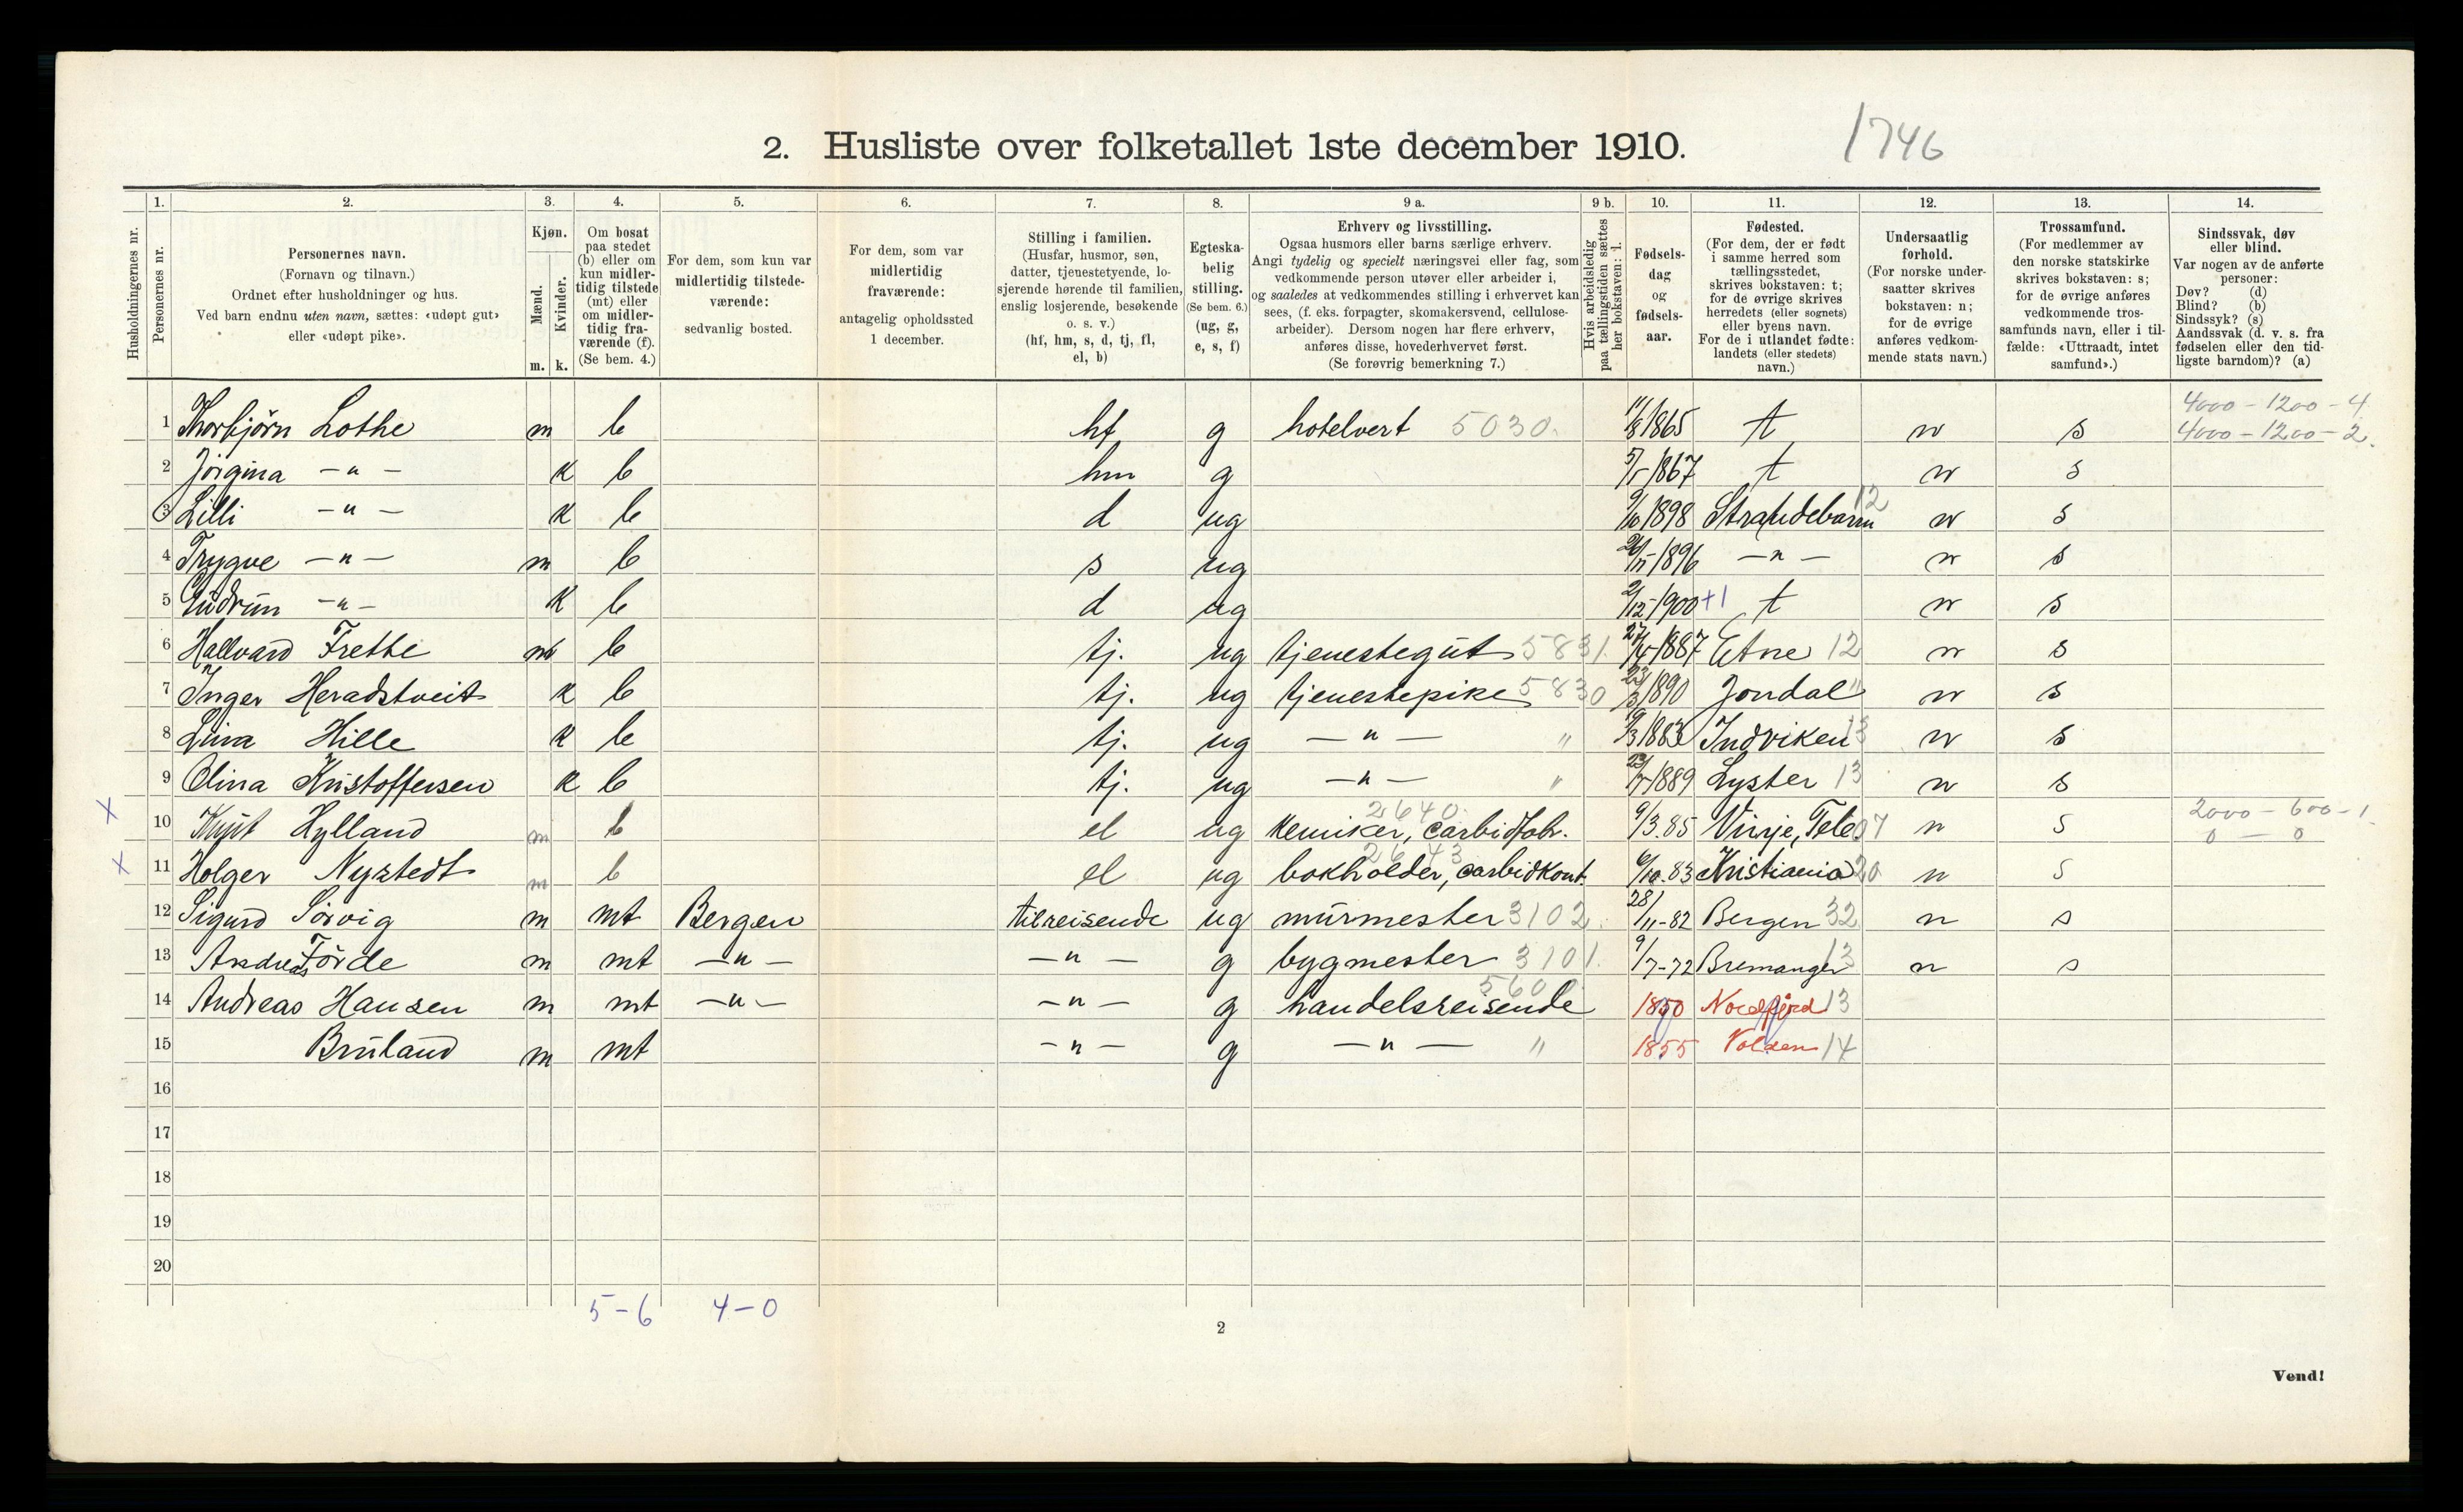 2. Husliste over folketallet 1ste december 1910.
1746
1. 2. 3. 4. 5. 6. 7. 8. 9 a. 9 b. 10. 11. 12. 13. 14.
Husholdningernes nr.
Personernes nr.
Personernes navn.
(Fornavn og tilnavn.)
Ordnet efter husholdninger og hus.
Ved barn endnu uten navn, sættes: «udøpt gut»
eller «udøpt pike».
Kjøn.
Mænd.
Kvinder.
m. k.
Om bosat
paa stedet
(b) eller om
kun midler-
tidig tilstede
(mt) eller
om midler-
tidig fra-
værende (f).
(Se bem. 4.)
For dem, som kun var
midlertidig tilstede-
værende:
sedvanlig bosted.
For dem, som var
midlertidig
fraværende:
antagelig opholdssted
1 december.
Stilling i familien.
(Husfar, husmor, søn,
datter, tjenestetyende, lo-
sjerende hørende til familien,
enslig losjerende, besøkende
o. s. v.)
(hf, hm, s, d, tj, fl,
el, b)
Egteska-
belig
stilling.
(Se bem. 6.)
(ug, g,
e, s, f)
Erhverv og livsstilling.
Ogsaa husmors eller barns særlige erhverv.
Angi tydelig og specielt næringsvei eller fag, som
vedkommende person utøver eller arbeider i,
og saaledes at vedkommendes stilling i erhvervet kan
sees, (f. eks. forpagter, skomakersvend, cellulose-
arbeider). Dersom nogen har flere erhverv,
anføres disse, hovederhvervet først.
(Se forøvrig bemerkning 7.)
Hvis arbeidsledig
paa tællingstiden sættes
her bokstaven: l.
Fødsels-
dag
og
fødsels-
aar.
Fødested.
(For dem, der er født
i samme herred som
tællingsstedet,
skrives bokstaven: t;
for de øvrige skrives
herredets (eller sognets)
eller byens navn.
For de i utlandet fødte:
landets (eller stedets)
navn.)
Undersaatlig
forhold.
(For norske under-
saatter skrives
bokstaven: n;
for de øvrige
anføres vedkom-
mende stats navn.)
Trossamfund.
(For medlemmer av
den norske statskirke
skrives bokstaven: s;
for de øvrige anføres
vedkommende tros-
samfunds navn, eller i til-
fælde: «Uttraadt, intet
samfund».)
Sindssvak, døv
eller blind.
Var nogen av de anførte
personer:
Døv? (d)
Blind? (b)
Sindssyk? (s)
Aandssvak (d. v. s. fra
fødselen eller den tid-
ligste barndom)? (a)
4000 - 1200 - 4
1 Thorbjörn Lothe m b hf g hotelvert 5030. 11/8 1865 t n s 4000 - 1200 - 2.
2 Jörgina -"- k b hm g 5/5 1867 t n s
3 Lilli -"- k b d ug 9/10 1898 Strandebarm 12 n s
4 Trygve -"- m b s ug 1896 -"- n s
5 Gudrun -"- k b d ug 2/12 1900 +1 t n s
6 Hallvard Frette m b tj. ug tjenestegut 5831. 27/4 1887 Etne 12 n s
7 Inger Heradstveit k b tj. ug tjenestepike 5830 1890 Jondal " n s
8 Lina Hille k b tj. ug -"- " 19/3 1883 Indviken 13 n s
9 Olina Kristoffersen k b tj. ug -"- " 1889 Lyster 13 n s
2640.
X 10 Knut Hylland m b el ug kemiker, carbidfabr. 9/3.85 Vinje, Tele 07 n s 2000 - 600 - 1.
0 - 0
2643
X 11 Holger Nystedt m b el ug bokholder, carbidkont. 6/10.83 Kristiania 20 n s
12 Sigurd Sörvig m mt Bergen tilreisende ug murmester 3102. 28/11-82 Bergen 32 n s
13 Andreas Förde m mt -"- -"- g bygmester 3101. 9/7-72 Bremanger 13 n s
560
14 Andreas Hansen m mt -"- -"- g handelsreisende 1850 Nordfjord 13
15 Bruland m mt -"- g -"- " 1855 Volden 14
16
17
18
19
20
5-6 4-0
2
Vend!